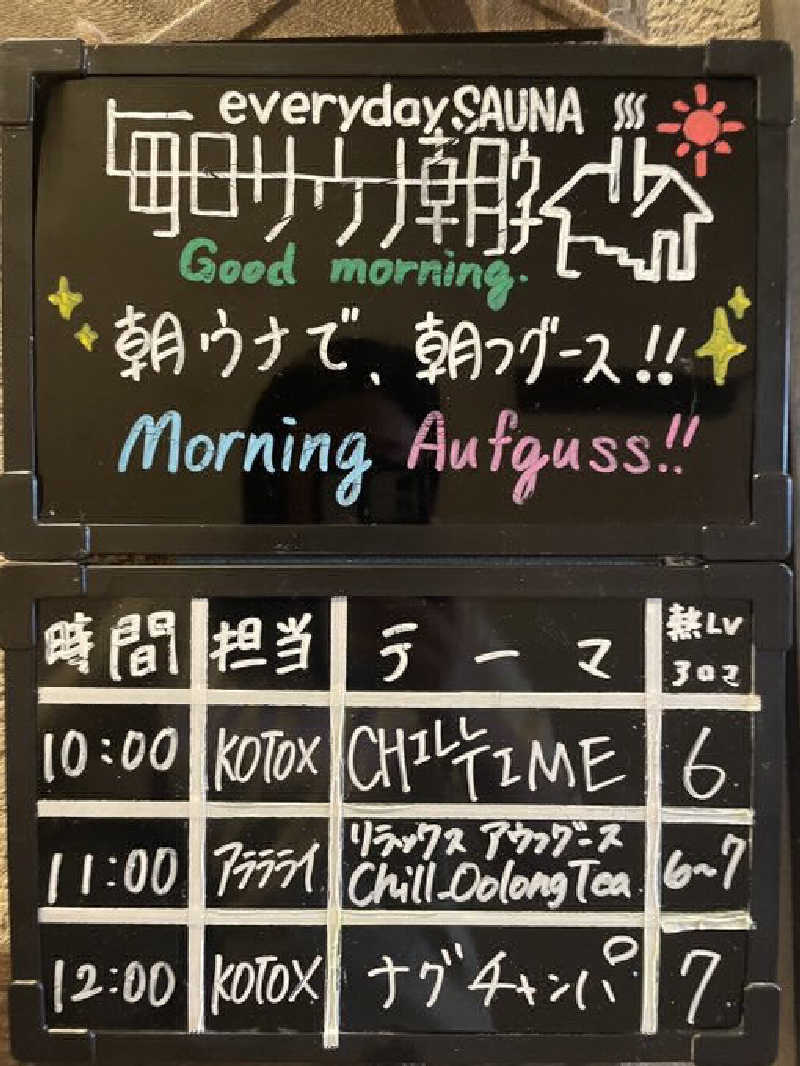 everyday SAUNA
毎日サウナ朝
Good morning.
朝ウナで、朝っグース!!
Morning Aufguss!!
時間 担当 テーマ 熱LV アロマ
10:00 KOTOX CHILL TIME 6
11:00 アララライ リラックス アウフグース Chill Oolong Tea 6~7
12:00 KOTOX ナグチャンパ 7